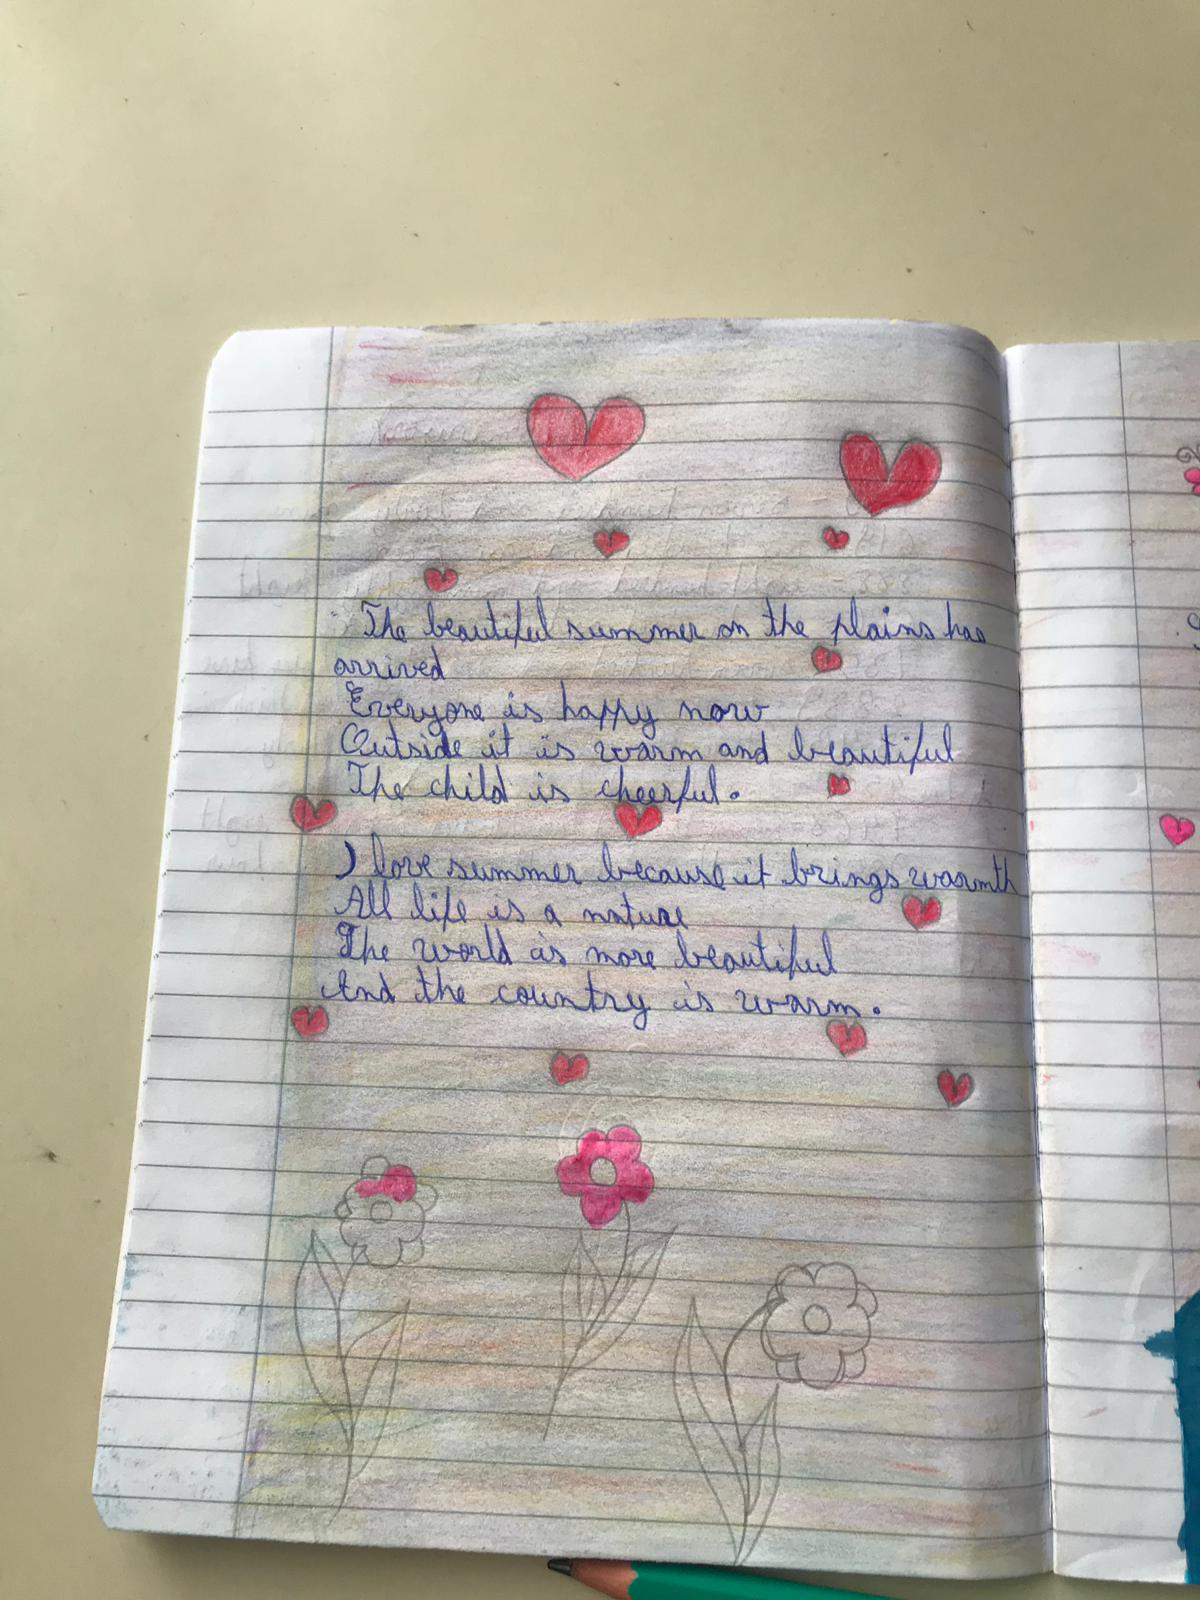 The beautiful summer on the plains has
arrived
Everyone is happy now
Outside it is warm and beautiful
The child is cheerful.
I love summer because it brings warmth
All life is a nature
The world is more beautiful
And the country is warm.